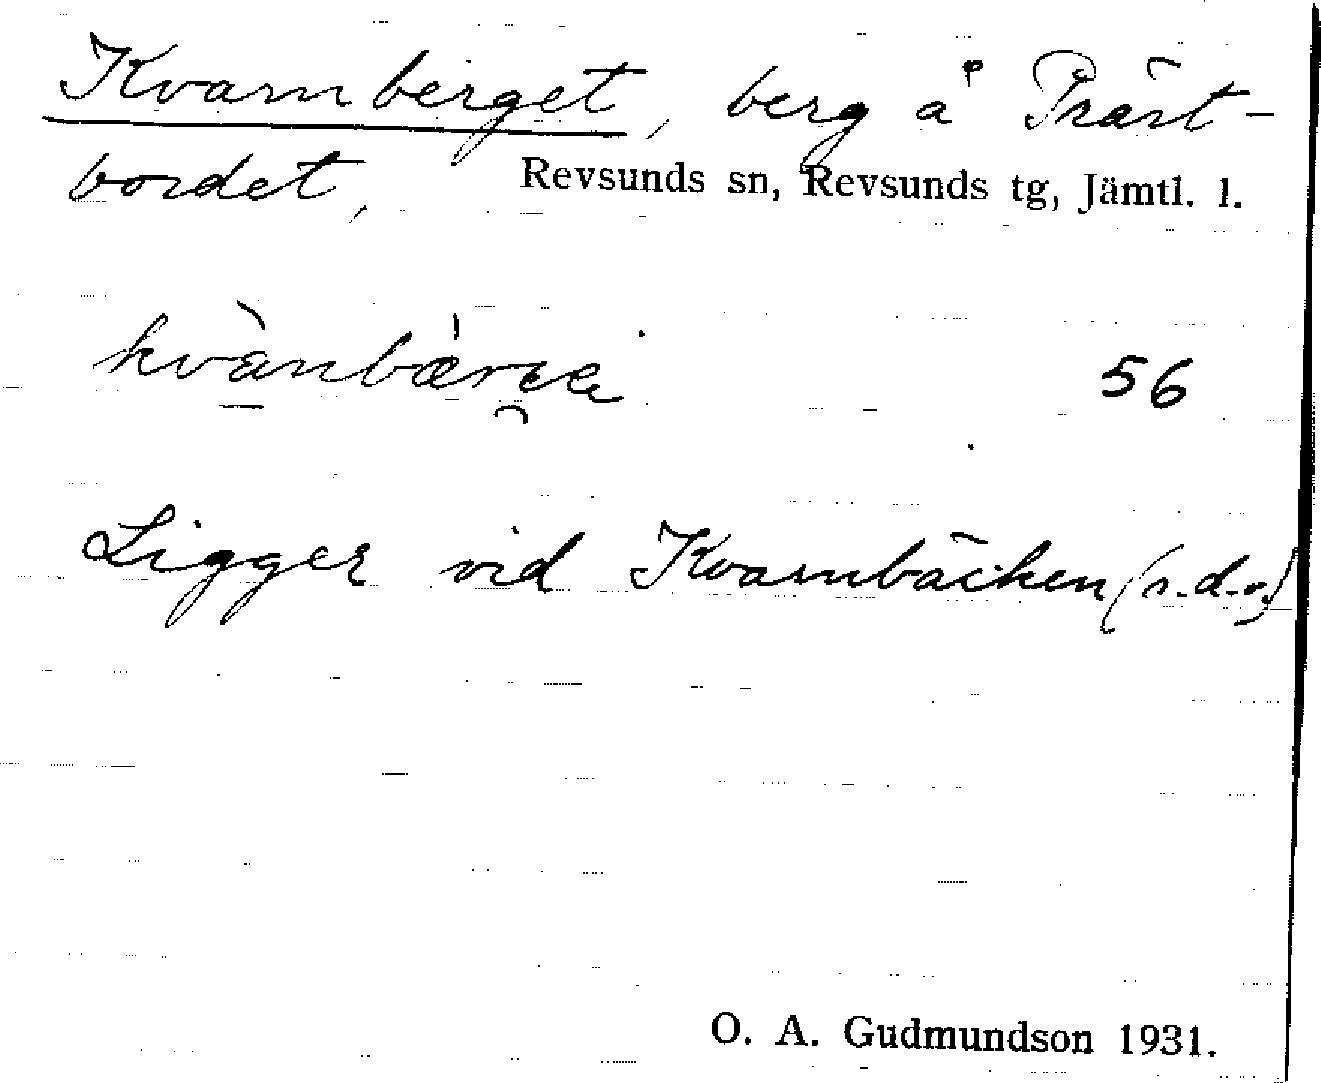 Kvarnberget, berg å Präst-
bordet, Revsunds sn, Revsunds tg, Jämtl. l.
56
Ligger vid Kvarnbäcken (s.d.o.)
O. A. Gudmundson 1931.